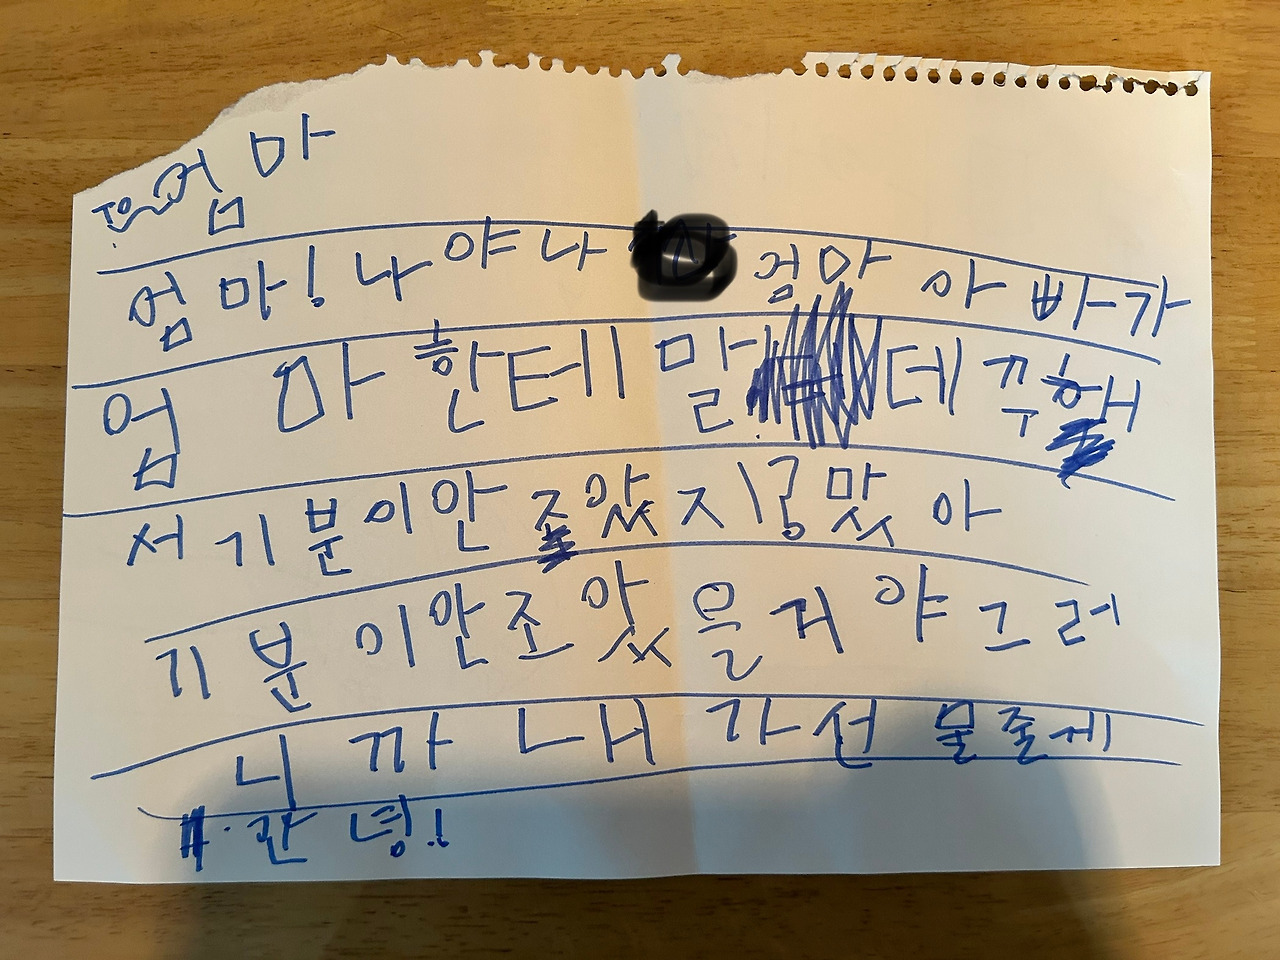 TO 엄마
엄마! 나야 나 엄마 아빠가
엄마 한테 말데꾸해
서 기분이 안 조았지? 맞아
기분 이안조았을거야 그러
니까 내가 선물줄게
녕!